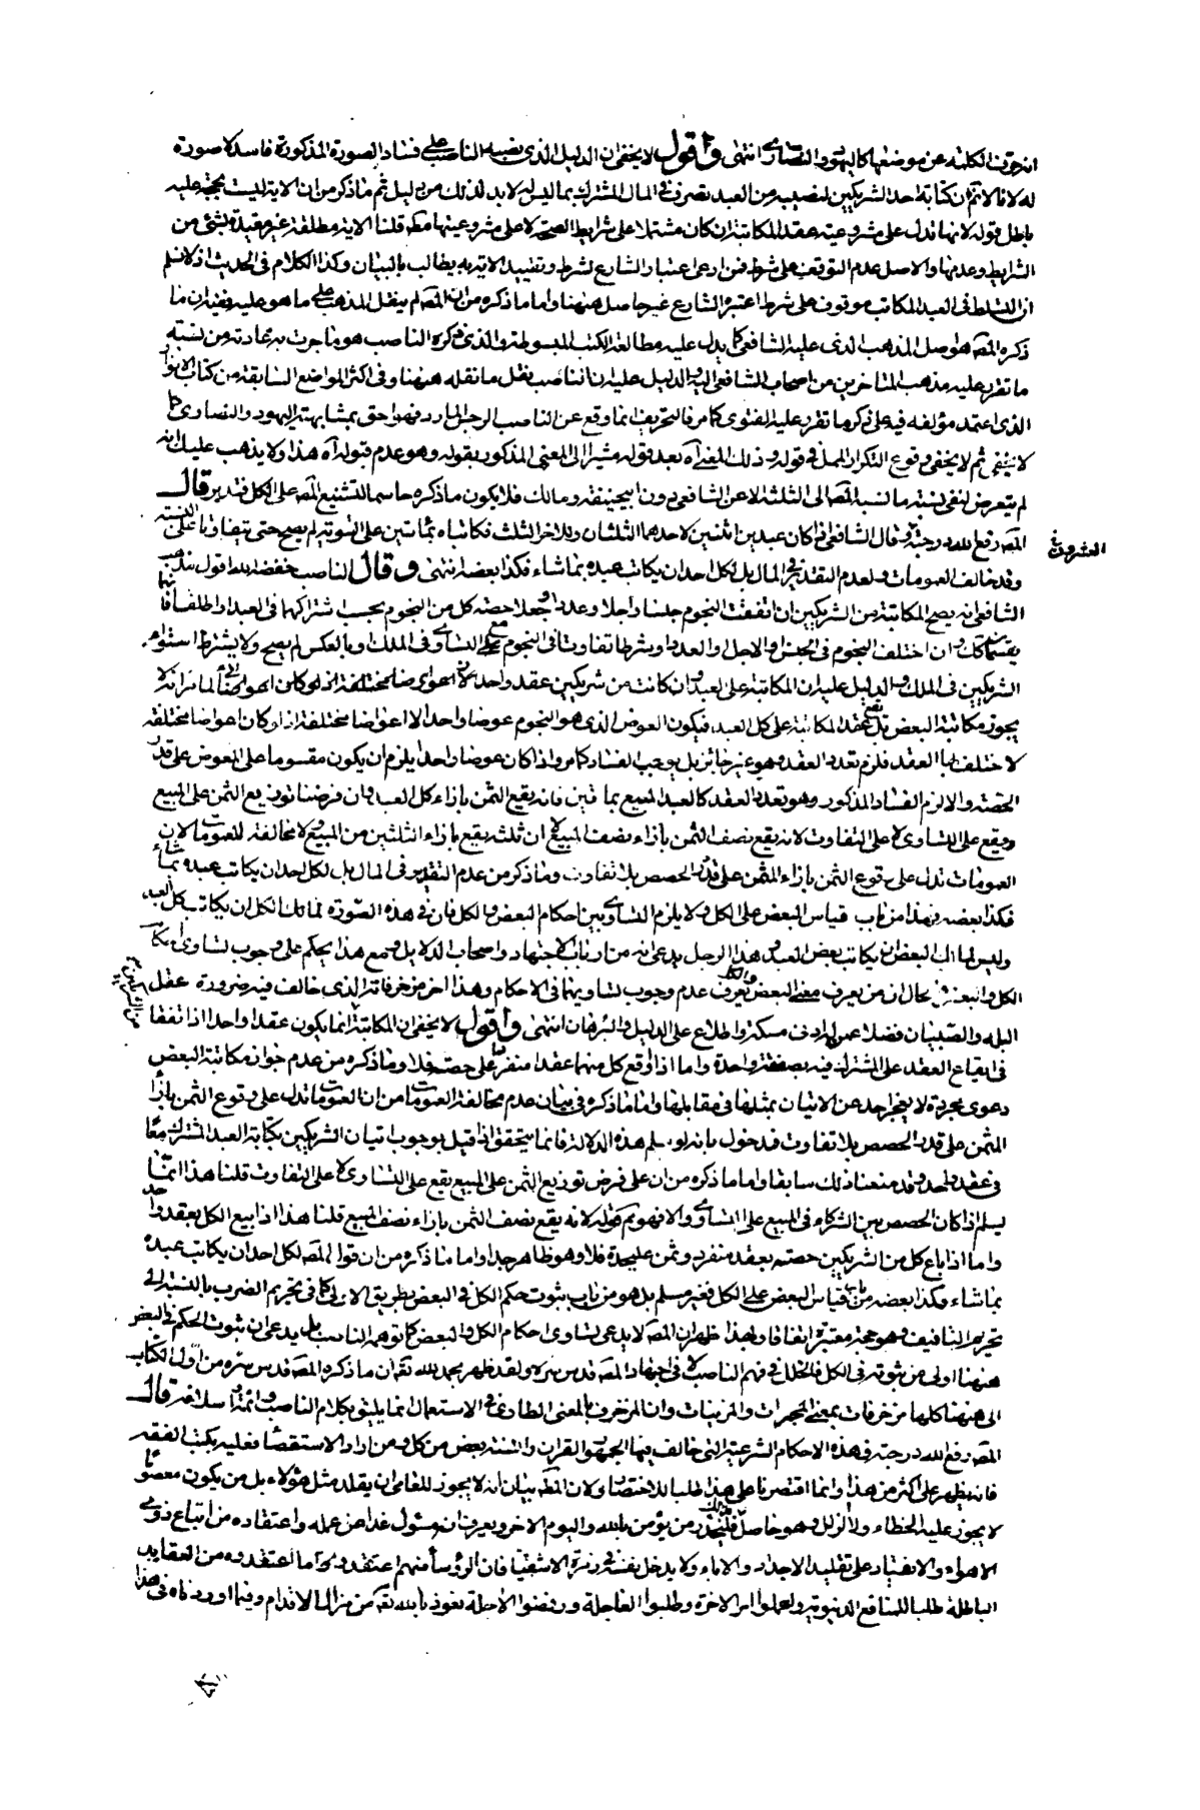 انه حرف الكلمة عن موضعها كاليهود و النصارى انتهى واقول لا يخفى ان الدليل الذى نصبه الناصب على فساد الصورة المذكورة فاسد لا صورة
له لانا لا نم ان كتابة احد الشريكين لنصيبه من العبد تصرف فى المال المشترك بما ليس له لا بد لذلك من دليل ثم ما ذكر من ان الاية ليست بحجة عليه
باطل قوله لانها تدل على مشروعية عقد المكاتبة ان كان مشتملا على شرايط الصحة لا على مشروعيتها مطه قلنا الاية مطلقة غير مقيدة بشئ من
الشرايط وعدمها والاصل عدم التوقف على شرط فمن ادعى اعتبار الشارع لشرط وتقييد الاية به يطالب بالبيان وكذا الكلام فى الحديث اذ لا نسلم
ان التسلط فى العبد المكاتب موقوف على شرط اعتبره الشارع غير حاصل هيهنا واما ما ذكره من ان المصه لم ينقل المذهب على ما هو عليه ففيه ان ما
ذكره المصه هو اصل المذهب الذى عليه الشافعى كما يدل عليه مطالعة الكتب المبسوطة والذى ذكره الناصب هو ما جرت به عادته من نسبة
ما تقرر عليه مذهب المتاخرين من اصحاب الشافعى اليه والدليل عليه ان الناصب نقل ما نقله هيهنا وفى اكثر المواضع السابقة من كتاب الانوار
الذى اعتمد مؤلفه فيه على ذكر ما تقرر عليه الفتوى كما مر فالتحريف انما وقع عن الناصب الرجل المارد فهو احق بمشابهة اليهود والنصارى كما
لا يخفى ثم لا يخفى وقوع التكرار الممل فى قوله وذلك المغى آه بعد قوله مشيرا الى المعنى المذكور بقوله وهو عدم قبوله آه هذا ولا يذهب عليك انه
لم يتعرض لنفى نسبة ما نسبه المصه الى الثلثة الا عن الشافعى دون ابيحنيفة ومالك فلا يكون ما ذكره حاسما لتشنيع المصه على الكل فتدبر قال
المصه رفع الله درجته و قال الشافعى اذا كان عبد بين اثنين لاحدهما الثلثان وللاخر الثلث فكاتباه بمائتين على السوية لم يصح حتى يتفاوتا على النسبة
العشرون
وقد خالف العمومات ولعدم التقدير فى المال بل لكل احد ان يكاتب عبده بما شاء فكذا بعضه انتهى وقال الناصب خفضه الله اقول مذهب
الشافعى انه يصح المكاتبة من الشريكين ان اتفقت النجوم جنسا واجلا وعددا وجعلا حصة كل من النجوم بحسب اشتراكهما فى العبد او اطلقا فانها
يقسم كك وان اختلف النجوم فى الجنس او الاجل او العدد او شرطا تفاوتا فى النجوم مع التساوى فى الملك او بالعكس لم يصح ولا يشترط استواء
الشريكين فى الملك والدليل عليه ان المكاتبة على العبد وان كانت من شريكين عقد واحد لان
يجوز مكاتبة البعض بل يقع عقد المكاتبة على كل العبد فيكون العوض الذى هو النجوم عوضا واحدا لا اعواضا مختلفة اذ لو كان اعواضا مختلفة
لاختلف بها العقد فلزم تعدد العقد وهو غير جائز بل يوجب الفساد كما مر واذا كان عوضا واحدا يلزم ان يكون مقسوما على المعوض على قدر
الحصة والا لزم الفساد المذكور وهو تعدد العقد كالعبد المبيع بمائتين فانه يقع الثمن بازاء كل العبد وان فرضنا توزيع الثمن على المبيع
ويقع على التساوى لا على التفاوت لانه يقع نصف الثمن بازاء نصف المبيع لا ان ثلثه يقع بازاء الثلثين من المبيع ولا مخالفة للعمومات لان
العمومات تدل على وقوع الثمن بازاء المثمن على قدر الحصص بلا تفاوت وما ذكر من عدم التقدير فى المال بل لكل احد ان يكاتب عبده بما شاء
فكذا بعضه فهذا من باب قياس البعض على الكل ولا يلزم التساوى بين احكام البعض والكل فان فى هذه الصورة لمالك الكل ان يكاتب كل العبد
وليس لمالك البعض ان يكاتب بعض العبد وهذا الرجل يدعى انه من ارباب الاجتهاد واصحاب الدلايل ومع هذا يحكم على وجوب تساوى احكام
الكل والبعض فى كل حال ان من يعرف معنى البعض والكل يعرف عدم وجوب تساويهما فى الاحكام وهذا اخر مزخرفاته الذى خالف فيه ضرورة عقل
البله والصبيان فضلا عمن له ادنى مسكة واطلاع على الدليل والبرهان انتهى واقول لا يخفى ان المكاتبة انما يكون عقدا واحدا اذا اتفقا
من الشريكين
فى ايقاع العقد على المشترك فيه بصفقة واحدة واما اذا اوقع كل منهما عقدا منفردا على حصته فلا وما ذكره من عدم جواز مكاتبة البعض
دعوى مجردة لا يعجز احد عن الاتيان بمثلها فى مقابلها واما ما ذكره فى بيان عدم مخالفة العمومات من ان العمومات تدل على وقوع الثمن بازاء
المثمن على قدر الحصص بلا تفاوت فمدخول بانه لو سلم هذه الدلالة فانما يتحقق اذا قيل بوجوب اتيان الشريكين بكتابة العبد المشترك معا
فى عقد واحد وقد منعنا ذلك سابقا واما ما ذكره من ان على فرض توزيع الثمن على المبيع يقع على التساوى لا على التفاوت قلنا هذا انما
يسلم اذا كان الحصص بين الشركاء فى المبيع على التساوى والا فهو مم قوله لانه يقع نصف الثمن بازاء نصف المبيع قلنا هذا اذا بيع الكل بعقد واحد
واما اذا باع كل من الشريكين حصته بعقد منفرد وثمن عليحدة فلا وهو ظاهر جدا واما ما ذكره من ان قول المصه لكل احد ان يكاتب عبده
بما شاء فكذا بعضه من باب قياس البعض على الكل فغير مسلم بل هو من باب ثبوت حكم الكل فى البعض بطريق الاولى كما فى تحريم الضرب بالنسبة الى
تحريم التافيف وهو حجة معتبرة اتفاقا وبهذا ظهر ان المصه لا يدعى تساوى احكام الكل والبعض كما توهمه الناصب بل يدعى ان ثبوت الحكم فى البعض
هيهنا اولى من ثبوته فى الكل فالخلل فى فهم الناصب لا فى اجتهاد المصه قدس سره ولقد ظهر بحمد الله تعه ان ما ذكره المصه قدس سره من اول الكتاب
الى هيهنا كلها مزخرفات بمعنى المجوهرات والمزينات وان المزخرف بالمعنى الطارى فى الاستعمال انما يليق بكلام الناصب وائمة اسلافه قال
المصه رفع الله درجته فى هذه الاحكام الشرعية التى خالف فيها الجمهور القران والسنة بعض من كل ومن اراد الاستقصاء فعليه بكتب الفقه
فانه يظهر على اكثر من هذا وانما اقتصرنا على هذا طلبا للاختصار ولان المطه بيان انه لا يجوز للعامى ان يقلد مثل هؤلاء بل من يكون معصوما
لا يجوز عليه الخطاء ولا الزلل وهو حاصل فليحذر من يؤمن بالله واليوم الاخر ويعرف انه مسئول غدا عن عمله واعتقاده من اتباع ذوى
الاهواء والانقياد على تقليد الاجداد والاباء ولا يدخل نفسه فى زمرة الاشقياء فان الرؤسأ منهم اعتقدوا ما اعتقدوه من العقايد
الباطلة طلبا للمنافع الدنيوية واهملوا امر الاخرة وطلبوا العاجلة ورفضوا الاجلة نعوذ بالله تعه من مزال الاقدام وفيما اوردناه فى هذا